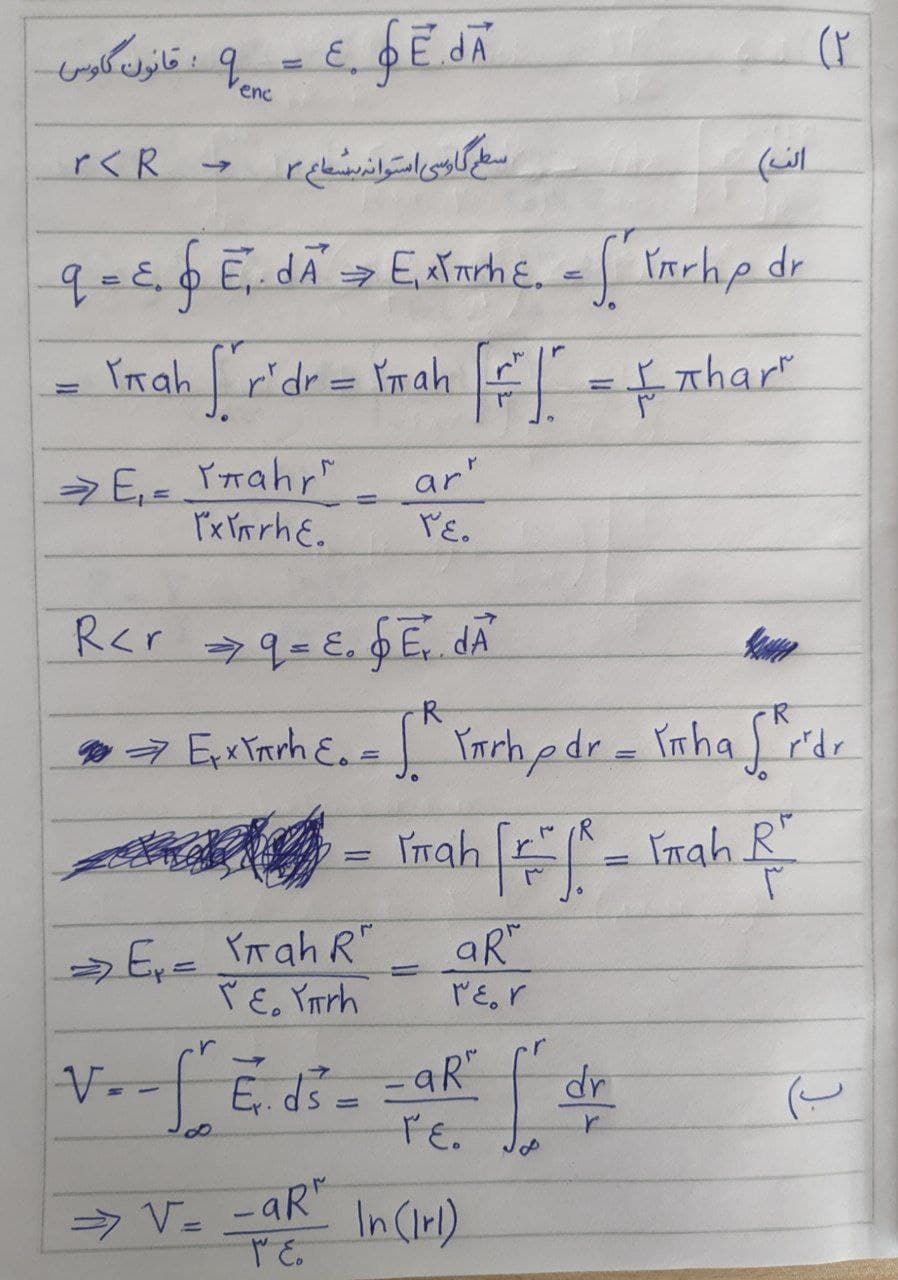 ۲) قانون گاوس : q_enc = ε₀ ∮ E⃗ . dA⃗
الف) سطح گاوسی استوانه بشعاع r ← r < R
q = ε₀ ∮ E⃗₁ . dA⃗ ⇒ E₁ × ۲πrh ε₀ = ∫₀^r ۲πrh ρ dr
= ۲πah ∫₀^r r^۲ dr = ۲πah [r^۳/۳]₀^r = ۲/۳ πhar^۳
⇒ E₁ = ۲πahr^۳ / ۳×۲πrhε₀ = ar^۲ / ۳ε₀
R < r ⇒ q = ε₀ ∮ E⃗₂ . dA⃗
⇒ E₂ × ۲πrh ε₀ = ∫₀^R ۲πrh ρ dr = ۲πha ∫₀^R r^۲ dr
= ۲πah [r^۳/۳]₀^R = ۲πah R^۳/۳
⇒ E₂ = ۲πah R^۳ / ۳ ε₀ ۲πrh = aR^۳ / ۳ε₀ r
ب) V = - ∫_∞^r E⃗₂ . ds⃗ = -aR^۳ / ۳ε₀ ∫_∞^r dr/r
⇒ V = -aR^۳ / ۳ε₀ ln(|r|)